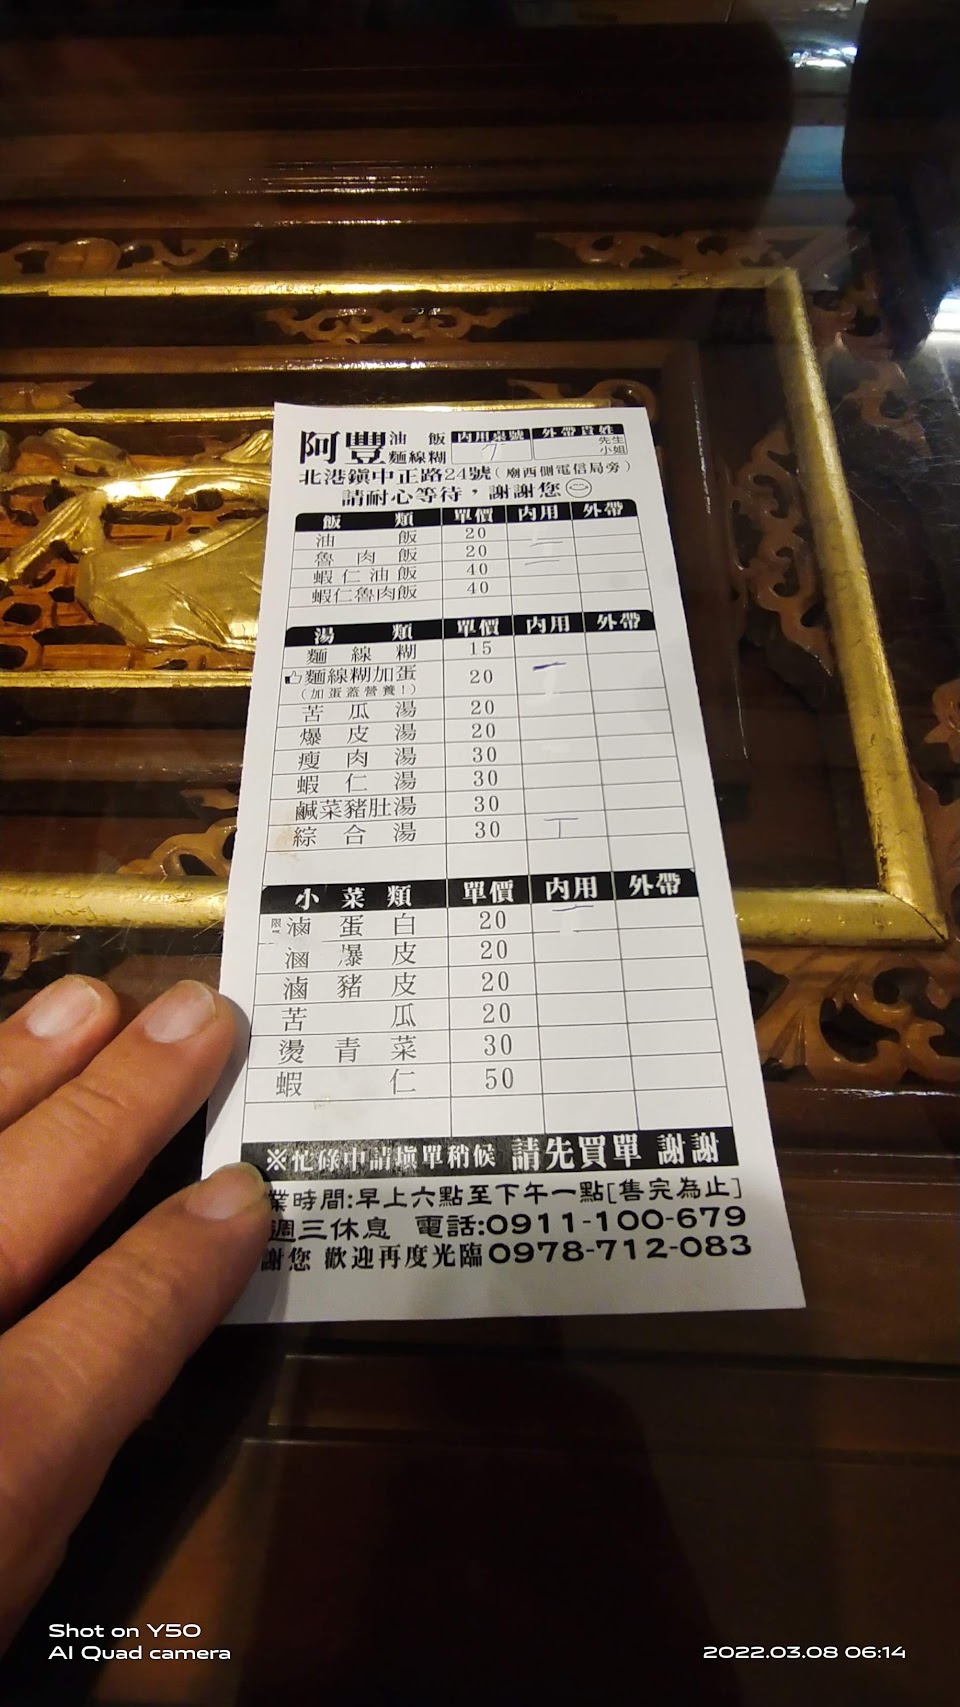 阿豐 油飯 麵線糊 內用桌號 外帶貴姓 先生 小姐
北港鎮中正路24號(廟西側電信局旁)
請耐心等待，謝謝您
飯類 單價 內用 外帶
油飯 20
魯肉飯 20
蝦仁油飯 40
蝦仁魯肉飯 40
湯類 單價 內用 外帶
麵線糊 15
麵線糊加蛋 20
(加蛋蓋營養!)
苦瓜湯 20
爆皮湯 20
瘦肉湯 30
蝦仁湯 30
鹹菜豬肚湯 30
綜合湯 30 丅
小菜類 單價 內用 外帶
限 滷蛋白 20
滷爆皮 20
滷豬皮 20
苦瓜 20
燙青菜 30
蝦仁 50
※忙碌中請填單稍候 請先買單 謝謝
業時間:早上六點至下午一點[售完為止]
週三休息 電話:0911-100-679
謝您 歡迎再度光臨0978-712-083
Shot on Y50
AI Quad camera
2022.03.08 06:14